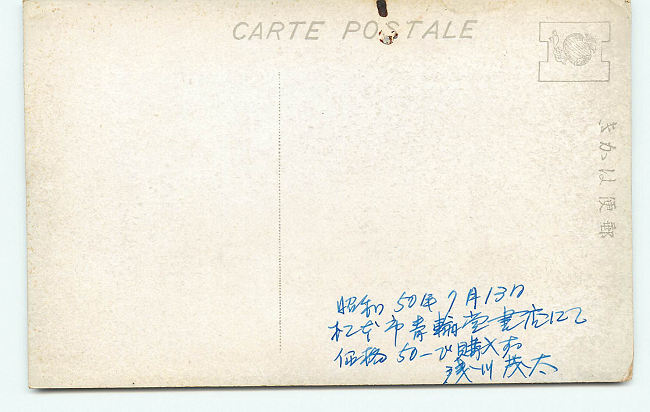 CARTE POSTALE
きかは便郵
昭和50年7月13日
松本市青翰堂書店にて
価格50-で購入す
浅川茂太